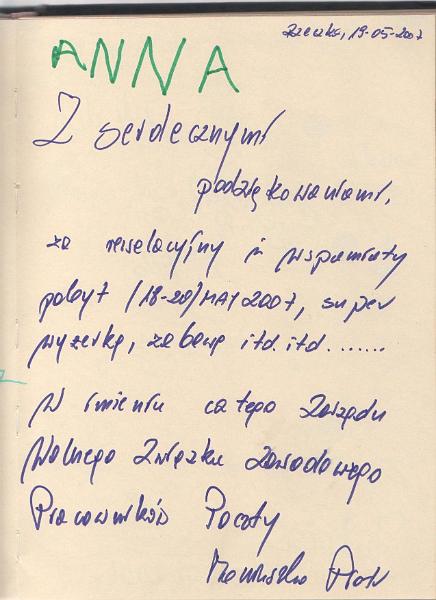 Rzeczka, 19-05-2007
ANNA
Z serdecznymi
podziękowaniami,
za rewelacyjny i wspaniały
pobyt (18-20) MAY 2007, super
wyżerkę, zabawę itd. itd. .......
W imieniu całego Zarządu
Wolnego Związku Zawodowego
Pracowników Poczty
Piotr